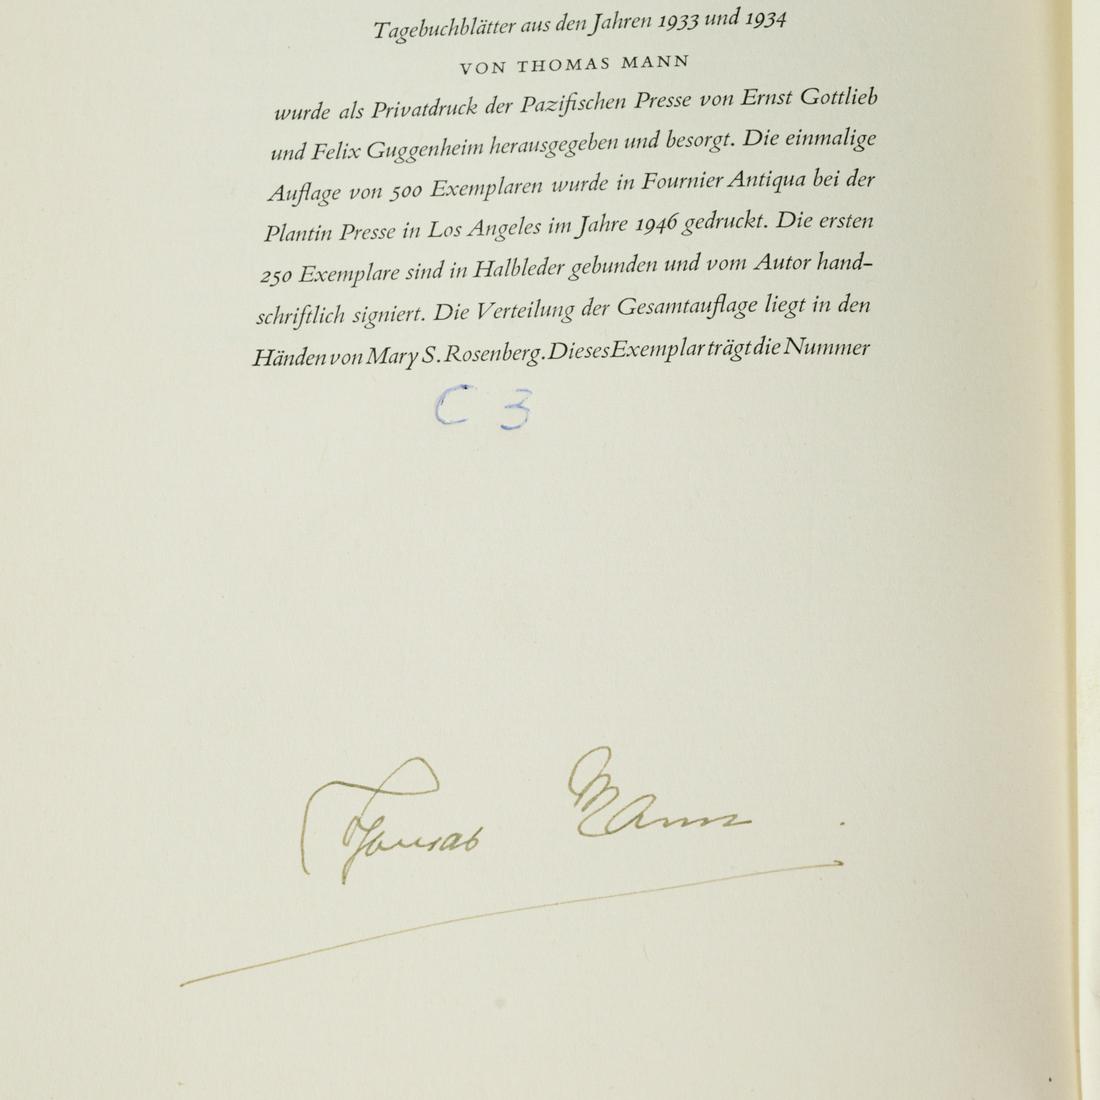 Tagebuchblätter aus den Jahren 1933 und 1934
VON THOMAS MANN
wurde als Privatdruck der Pazifischen Presse von Ernst Gottlieb
und Felix Guggenheim herausgegeben und besorgt. Die einmalige
Auflage von 500 Exemplaren wurde in Fournier Antiqua bei der
Plantin Presse in Los Angeles im Jahre 1946 gedruckt. Die ersten
250 Exemplare sind in Halbleder gebunden und vom Autor hand-
schriftlich signiert. Die Verteilung der Gesamtauflage liegt in den
Händen von Mary S. Rosenberg. Dieses Exemplar trägt die Nummer
C 3
Thomas Mann